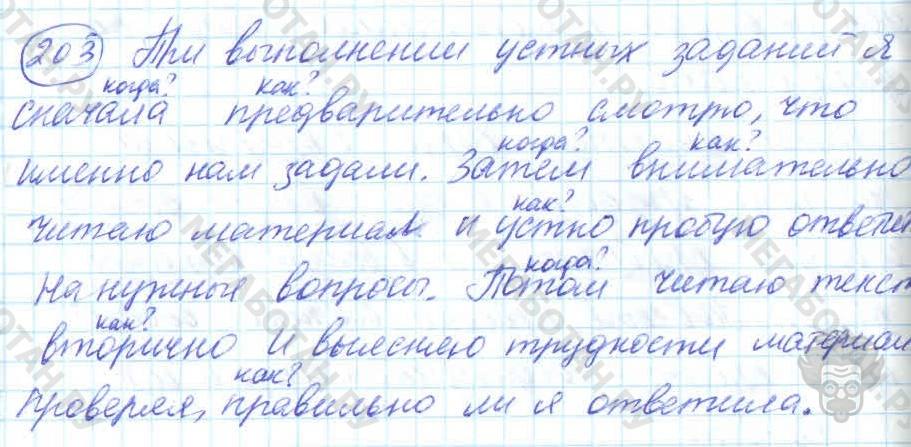 203 При выполнении устных заданий я
когда? как?
сначала предварительно смотрю, что
когда? как?
именно нам задали. Затем внимательно
как?
читаю материал и устно пробую ответит
когда?
на нужные вопросы. Потом читаю текст
как?
вторично и выясняю трудности материал
как?
Проверяя, правильно ли я ответила.